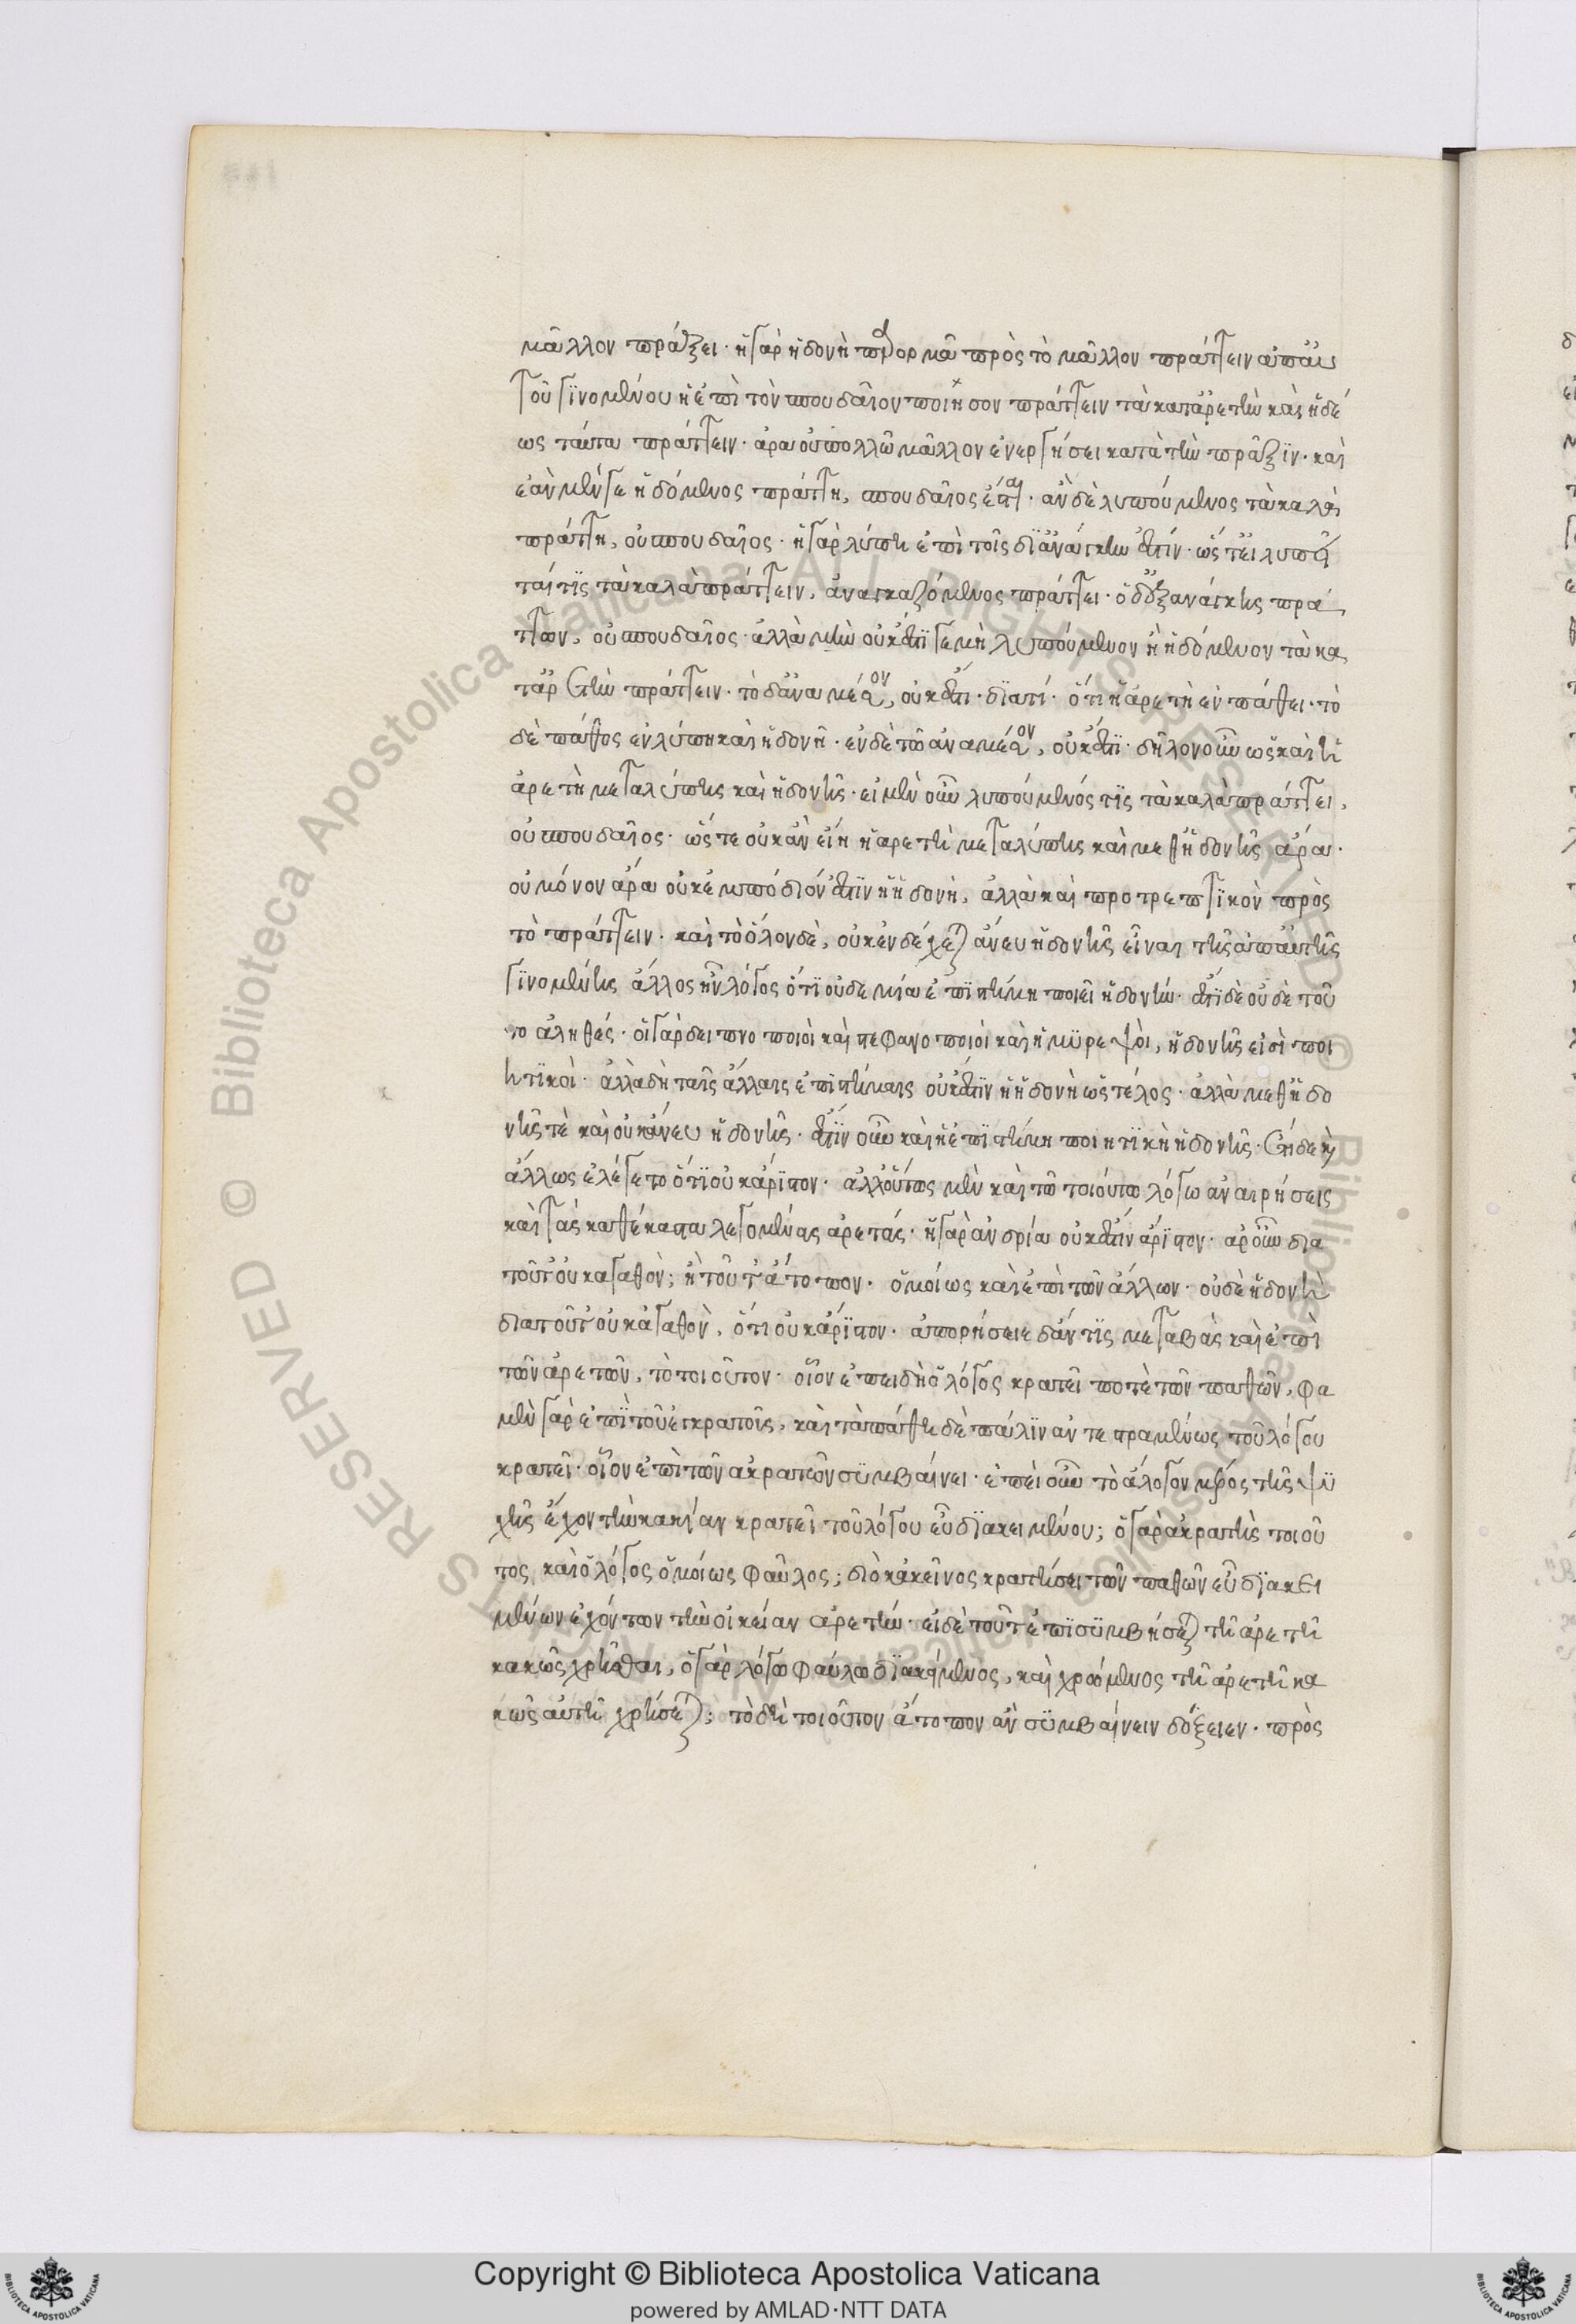 μᾶλλον πράξει· ἡ γὰρ ἡδονὴ παρορμᾶ πρὸς τὸ μᾶλλον πράττειν ἀπ' αὐ
τοῦ γινομένου ἡ ἐπὶ τὸν σπουδαῖον ποίησον πράττειν τὰ κατ' ἀρετὴν καὶ ἡδέ
ως ταῦτα πράττειν· ἆρα οὐ πολλῶ μᾶλλον ἐνεργήσει κατὰ τὴν πρᾶξιν· καὶ
ἐὰν μέν γε ἡδόμενος πράττη, σπουδαῖος ἔσται· ἂν δὲ λυπούμενος τὰ καλὰ
πράττη, οὐ σπουδαῖος· ἡ γὰρ λύπη ἐπὶ τοῖς δι' ἀνάγκην ἐστίν· ὥστ' εἰ λυπεῖ
ταί τις τὰ καλὰ πράττειν, ἀναγκαζόμενος πράττει· ὁ δ' ἐξ ἀνάγκης πρά
ττων, οὐ σπουδαῖος· ἀλλὰ μὴν οὐκ ἔστι γε μὴ λυπούμενον ἢ ἡδόμενον τὰ κα
τ' ἀρετὴν πράττειν· τὸ δ' ἀνα μέσον, οὐκ ἔστι· διατί· ὅτι ἡ ἀρετὴ ἐν πάθει· τὸ
δὲ πάθος ἐν λύπη καὶ ἡδονῆ· ἐν δὲ τῶ ἀνα μέσον, οὐκ ἔστι· δῆλον οὖν ὡς καὶ ἡ
ἀρετὴ μετα λύπης καὶ ἡδονῆς· εἰ μὲν οὖν λυπούμενός τις τὰ καλὰ πράττει,
οὐ σπουδαῖος· ὥστε οὐκ ἂν εἴη ἡ ἀρετὴ μετα λύπης καὶ μεθ' ἡδονῆς ἄρα·
οὐ μόνον ἄρα οὐκ ἐμπόδιόν ἐστιν ἡ ἡδονὴ, ἀλλὰ καὶ προτρεπτικὸν πρὸς
τὸ πράττειν· καὶ τὸ ὅλον δὲ, οὐκ ἐνδέχεται ἄνευ ἡδονῆς εἶναι τῆς ἀπ' αὐτῆς
γινομένης ἄλλος ἦν λόγος ὅτι οὐδεμία ἐπιστήμη ποιεῖ ἡδονήν· ἔστι δὲ οὐδὲ τοῦ
το ἀληθές· οἱ γὰρ δειπνοποιοὶ καὶ στεφανοποιοὶ καὶ ἡ μυρεψοὶ, ἡδονῆς εἰσὶ ποι
ητικοὶ· ἀλλὰ δὴ ταῖς ἄλλαις ἐπιστήμαις οὐκ ἔστιν ἡ ἡδονὴ ὡς τέλος· ἀλλὰ μεθ' ἡδο
νῆς τὲ καὶ οὐκ ἄνευ ἡδονῆς· ἔστιν οὖν καὶ ἡ ἐπιστήμη ποιητικὴ ἡδονῆς· ἔτι δὲ καὶ
ἄλλως ἐλέγετο ὅτι οὐκ ἄριστον· ἀλλ' οὕτως μὲν καὶ τῶ τοιούτω λόγω ἀναιρήσεις
καὶ τὰς καθέκαστα λεγομένας ἀρετάς· ἡ γὰρ ἀνδρία οὐκ ἐστὶν ἄριστον· ἆρ' οὖν δια
τοῦτ' οὐκ ἀγαθὸν; ἢ τοῦτ' ἄτοπον· ὁμοίως καὶ ἐπὶ τῶν ἄλλων· οὐδὲ ἡδονὴ
δια τοῦτ' οὐκ ἀγαθὸν, ὅτι οὐκ ἄριστον· ἀπορήσειε δ' ἄν τις μεταβὰς καὶ ἐπὶ
τῶν ἀρετῶν, τὸ τοιοῦτον· οἷον ἐπειδὴ ὁ λόγος κρατεῖ ποτὲ τῶν παθῶν, φα
μὲν γὰρ ἐπὶ τοῦ ἐγκρατοῖς, καὶ τὰ πάθη δὲ πάλιν ἀντεστραμένως τοῦ λόγου
κρατεῖ· οἷον ἐπὶ τῶν ἀκρατῶν συμβαίνει· ἐπεὶ οὖν τὸ ἄλογον μέρος τῆς ψυ
χῆς ἔχον τὴν κακίαν κρατεῖ τοῦ λόγου εὖ διακειμένου; ὁ γὰρ ἀκρατὴς τοιοῦ
τος καὶ ὁ λόγος ὁμοίως φαῦλος; διὸ κἀκεῖνος κρατήσει τῶν παθῶν εὖ διακει
μένων ἐχόντων τὴν οἰκείαν ἀρετήν· εἰ δὲ τοῦτ' ἔστι συμβήσεται τῆ ἀρετῆ
κακῶς χρῆσθαι, ὁ γὰρ λόγω φαύλω διακείμενος, καὶ χρώμενος τῆ ἀρετῆ κα
κῶς αὐτῆ χρήσεται; τὸ δὴ τοιοῦτον ἄτοπον ἂν συμβαίνειν δόξειεν· πρὸς
Copyright © Biblioteca Apostolica Vaticana
powered by AMLAD·NTT DATA